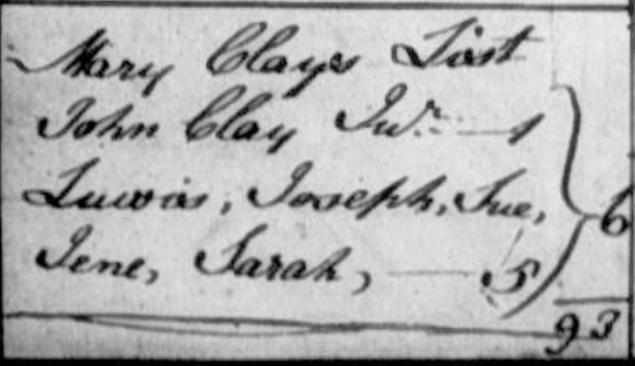 Mary Clays List
John Clay Junr. — 1
Luwis, Joseph, Sue, 6
Jene, Sarah, — 5
93